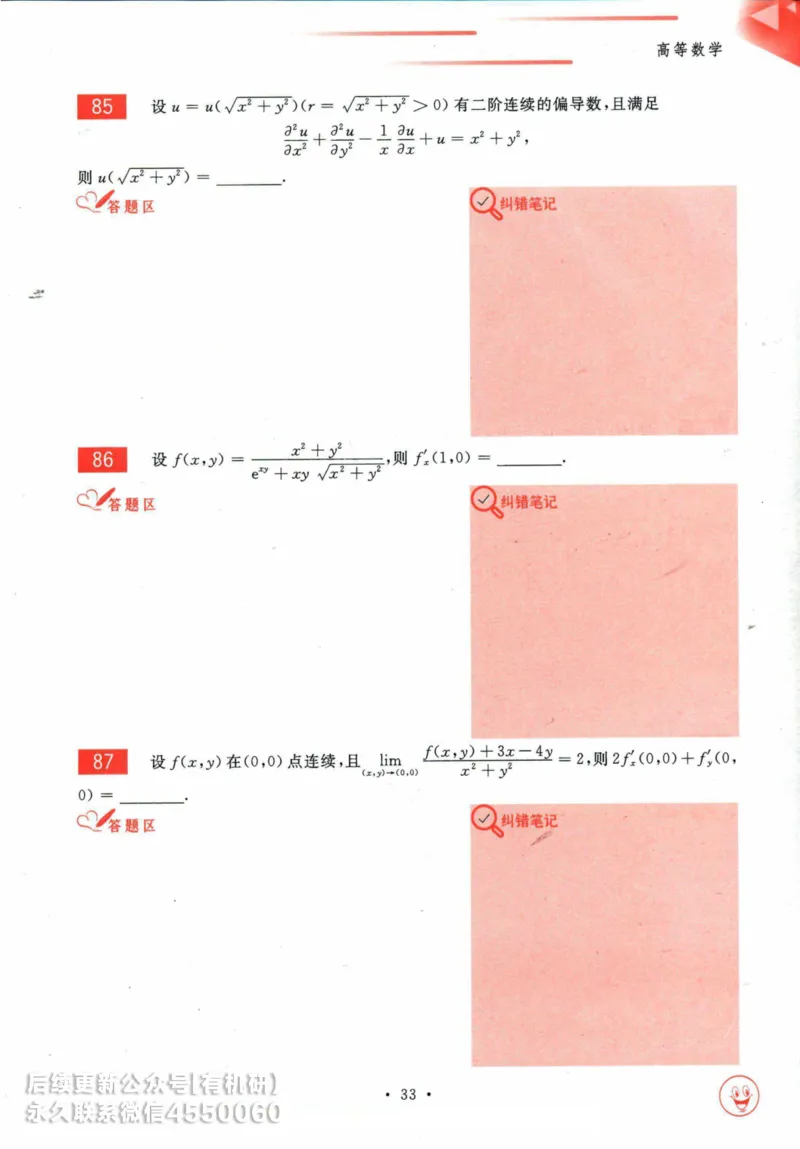 高等数学
85 设 u = u(√(x² + y²))(r = √(x² + y²) > 0) 有二阶连续的偏导数,且满足
∂²u/∂x² + ∂²u/∂y² − (1/x)(∂u/∂x) + u = x² + y²,
则 u(√(x² + y²)) = ______.
答题区
纠错笔记
86 设 f(x,y) = (x² + y²)/(e^{xy} + xy √(x² + y²)),则 f′ₓ(1,0) = ______.
答题区
纠错笔记
87 设 f(x,y) 在(0,0) 点连续,且 lim_{(x,y)→(0,0)} (f(x,y) + 3x − 4y)/(x² + y²) = 2,则 2f′ₓ(0,0) + f′_y(0,
0) = ______.
答题区
纠错笔记
后续更新公众号[有机研]
永久联系微信4550060
• 33 •